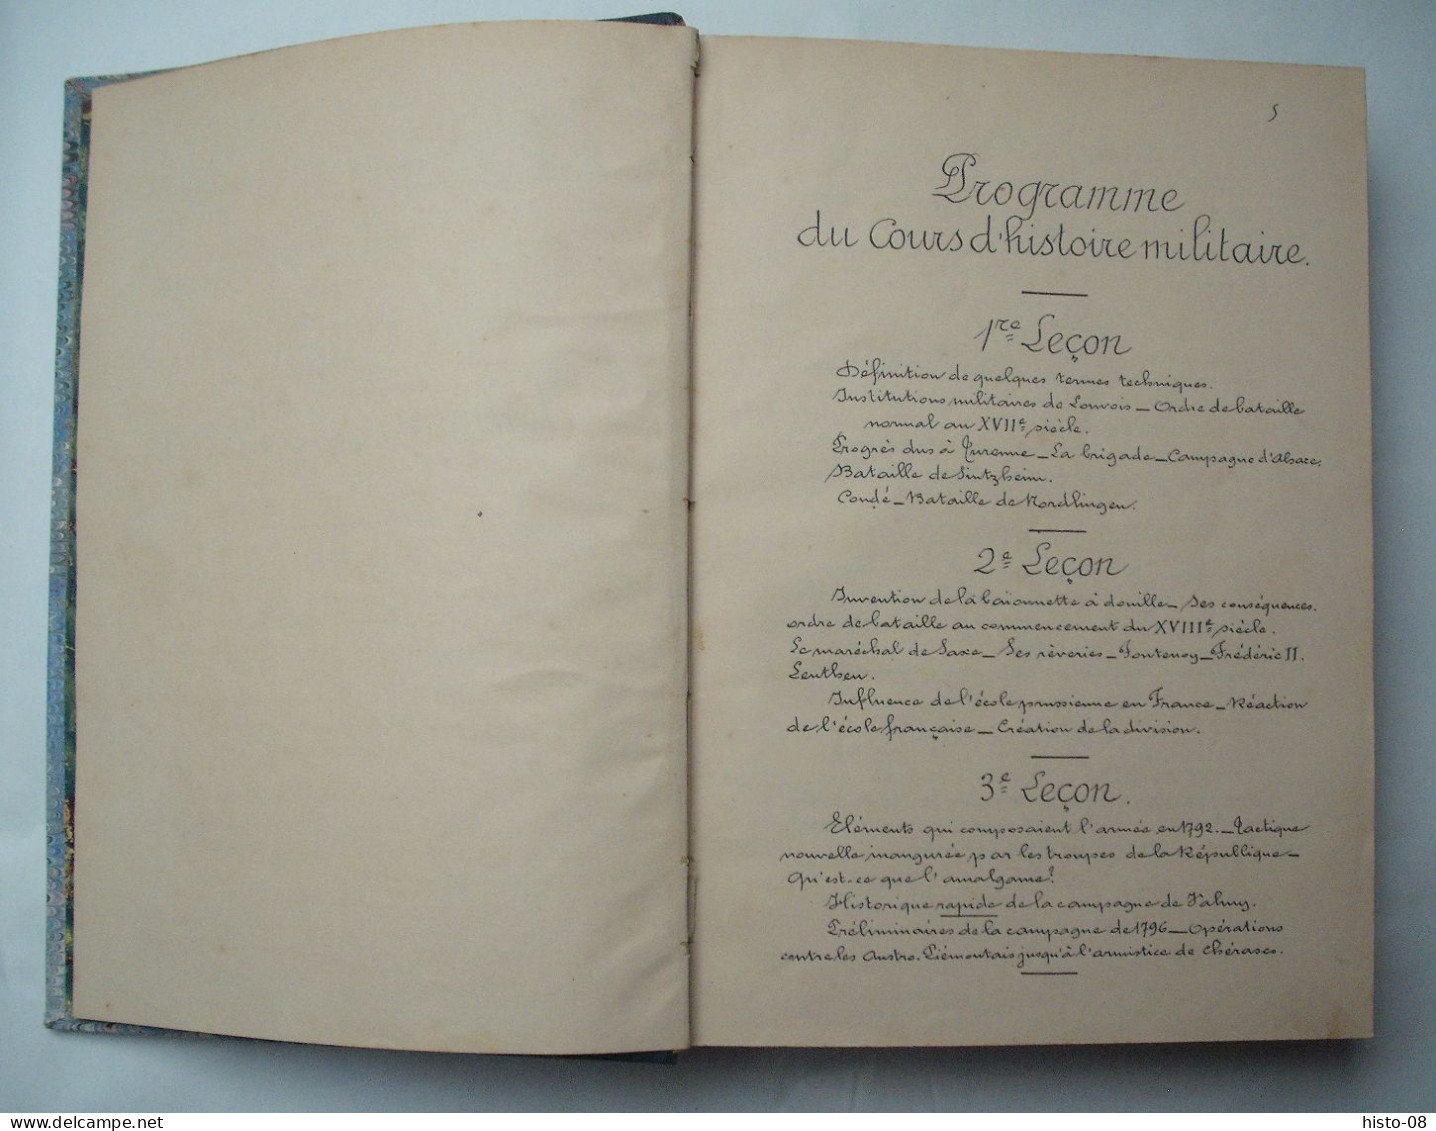 5
Programme
du Cours d'histoire militaire.
1re Leçon
Définition de quelques termes techniques.
Institutions militaires de Louvois _ Ordre de bataille
normal au XVIIe siècle.
Progrès dus à Turenne _ La brigade _ Campagne d'Alsace.
Bataille de Sintzheim.
Condé _ Bataille de Nordlingen.
2e Leçon
Invention de la baïonnette à douille _ Ses conséquences.
ordre de bataille au commencement du XVIIIe siècle.
Le maréchal de Saxe _ Ses rêveries _ Fontenoy _ Frédéric II.
Leuthen.
Influence de l'école prussienne en France _ Réaction
de l'école française _ Création de la division.
3e Leçon.
Eléments qui composaient l'armée en 1792. _ Tactique
nouvelle inaugurée par les troupes de la République _
Qu'est-ce que l'amalgame?
Historique rapide de la campagne de Valmy.
Préliminaires de la campagne de 1796 _ Opérations
contre les Austro-Piémontais jusqu'à l'armistice de Chérasco.
delcampe.net
histo-08